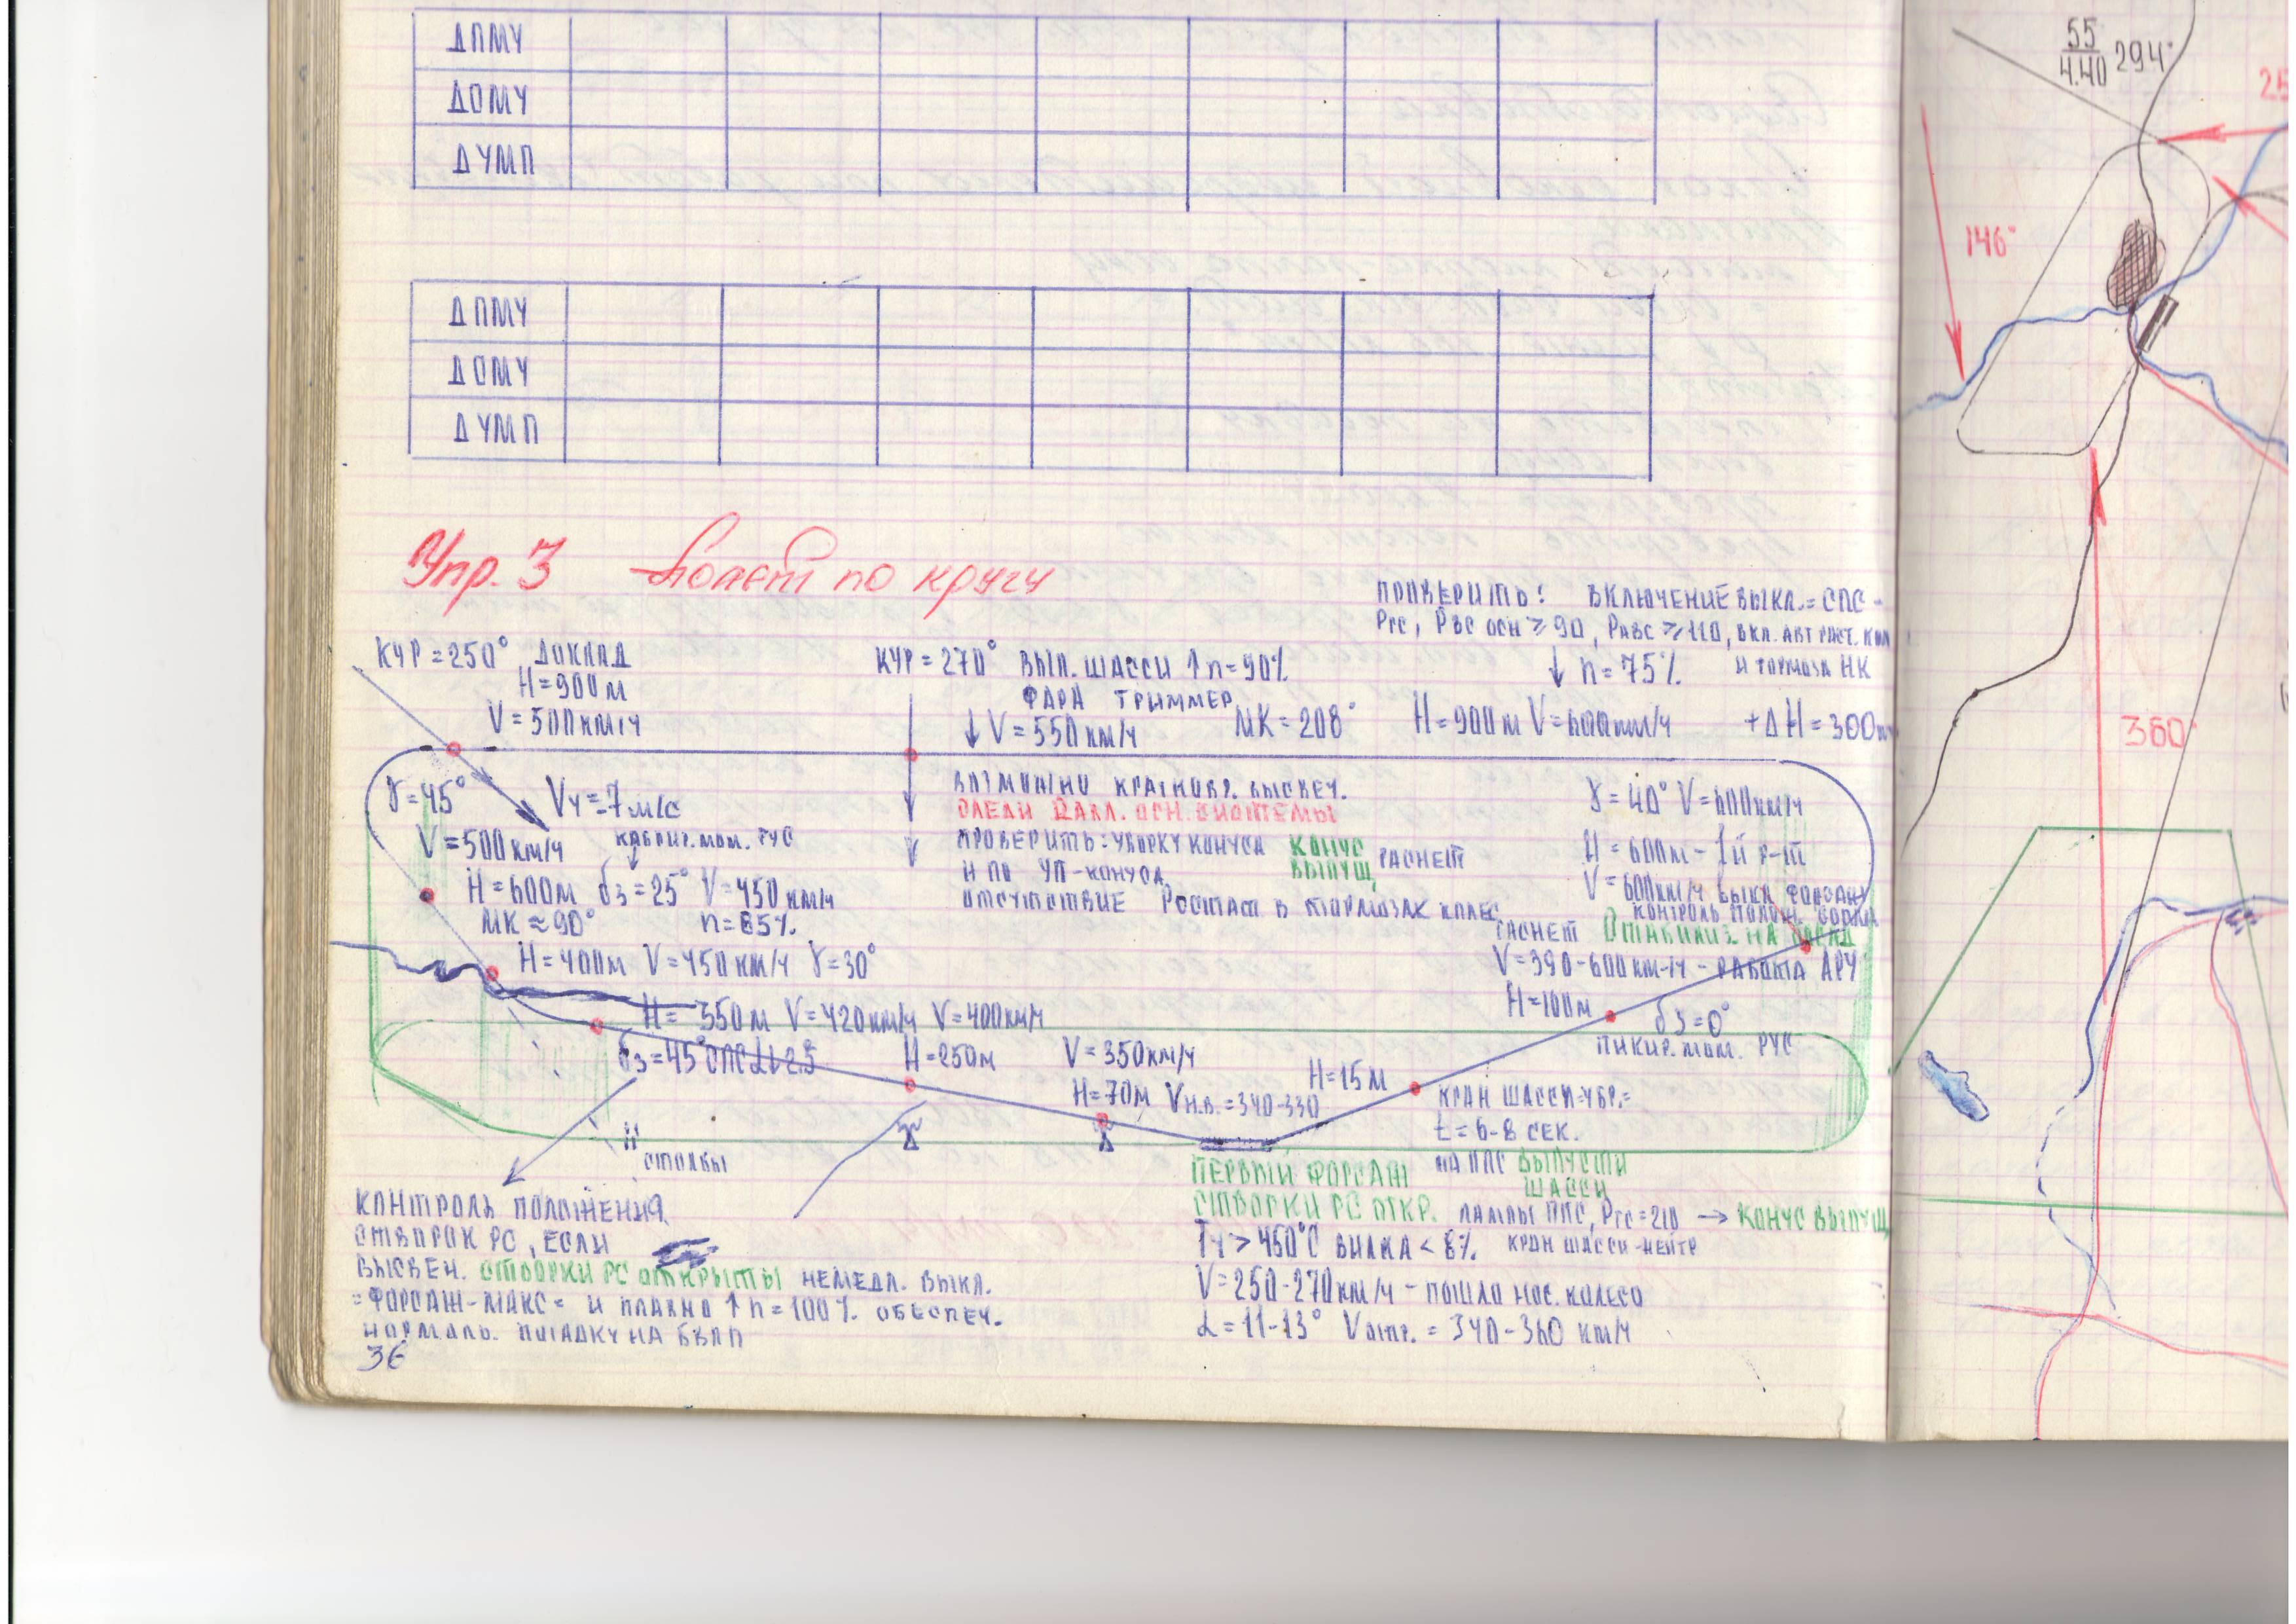 ДПМУ
ДОМУ
ДУМП
ДПМУ
ДОМУ
ДУМП
Упр. 3 Полет по кругу
ПРОВЕРИТЬ: ВКЛЮЧЕНИЕ ВЫКЛ.=СПС-
Ргс, Рвс осн ≥ 90, Равс ≥ 110, ВКЛ. АВТ РАСТ. КОЛ
↓ n = 75% И ТОРМОЗА НК
КУР = 250°, ДОКЛАД
H = 900м
V = 500км/ч
КУР = 270° ВЫП. ШАССИ ↑ n = 90%
ФАРА ТРИММЕР
↓ V = 550 км/ч МК = 208° H = 900м V = 600км/ч +ΔH = 300м
γ = 45° Vy = 7 м/с
V = 500 км/ч КАБРИР. МОМ. РУС
H = 600м δз = 25° V = 450 км/ч
МК ≈ 90° n = 85%
H = 400м V = 450 км/ч γ = 30°
H = 350 м V = 420 км/ч V = 400км/ч
δз = 45° СПС
ВОЗМОЖНО КРАТКОВР. ВЫСВЕЧ.
СЛЕДИ ДАВЛ. ОСН. СИСТЕМЫ
ПРОВЕРИТЬ: УБОРКУ КОНУСА КОНУС ВЫПУЩ. ГАСНЕТ
И ПО УП-КОНУСА
ОТСУТСТВИЕ Рост В ТОРМОЗАХ КОЛЕС
γ = 40° V = 600км/ч
H = 600м - 1й Р-Т
V = 600км/ч ВЫКЛ ФОРСАЖ
КОНТРОЛЬ ПОЛОЖ. СОПЛА
ГАСНЕТ СТАБИЛИЗ. НА
V = 390-600 км/ч - РАБОТА АРУ
H = 100м δз = 0°
ПИКИР. МОМ. РУС
H = 250м V = 350км/ч
H = 70м Vн.в. = 340-330 H = 15м
КРАН ШАССИ=УБР.=
t = 6-8 СЕК.
НА ППС ВЫПУСТИ
ШАССИ
СТОЛБЫ
КОНТРОЛЬ ПОЛОЖЕНИЯ
СТВОРОК РС, ЕСЛИ
ВЫСВЕЧ. СТВОРКИ РС ОТКРЫТЫ НЕМЕДЛ. ВЫКЛ.
=ФОРСАЖ-МАКС= И ПЛАВНО ↑ n = 100% ОБЕСПЕЧ.
НОРМАЛЬ. ПОСАДКУ НА БВПП
36
ПЕРВЫЙ ФОРСАЖ
СТВОРКИ РС ОТКР. ЛАМПЫ ППС, Ргс = 210 → КОНУС ВЫПУЩ
Т4 > 450°С ВИЛКА < 8% КРАН ШАССИ-НЕЙТР
V = 250-270 км/ч - ПОШЛО НОС. КОЛЕСО
α = 11-13° Vотр. = 340-360 км/ч
55
4.40 294°
146°
360°